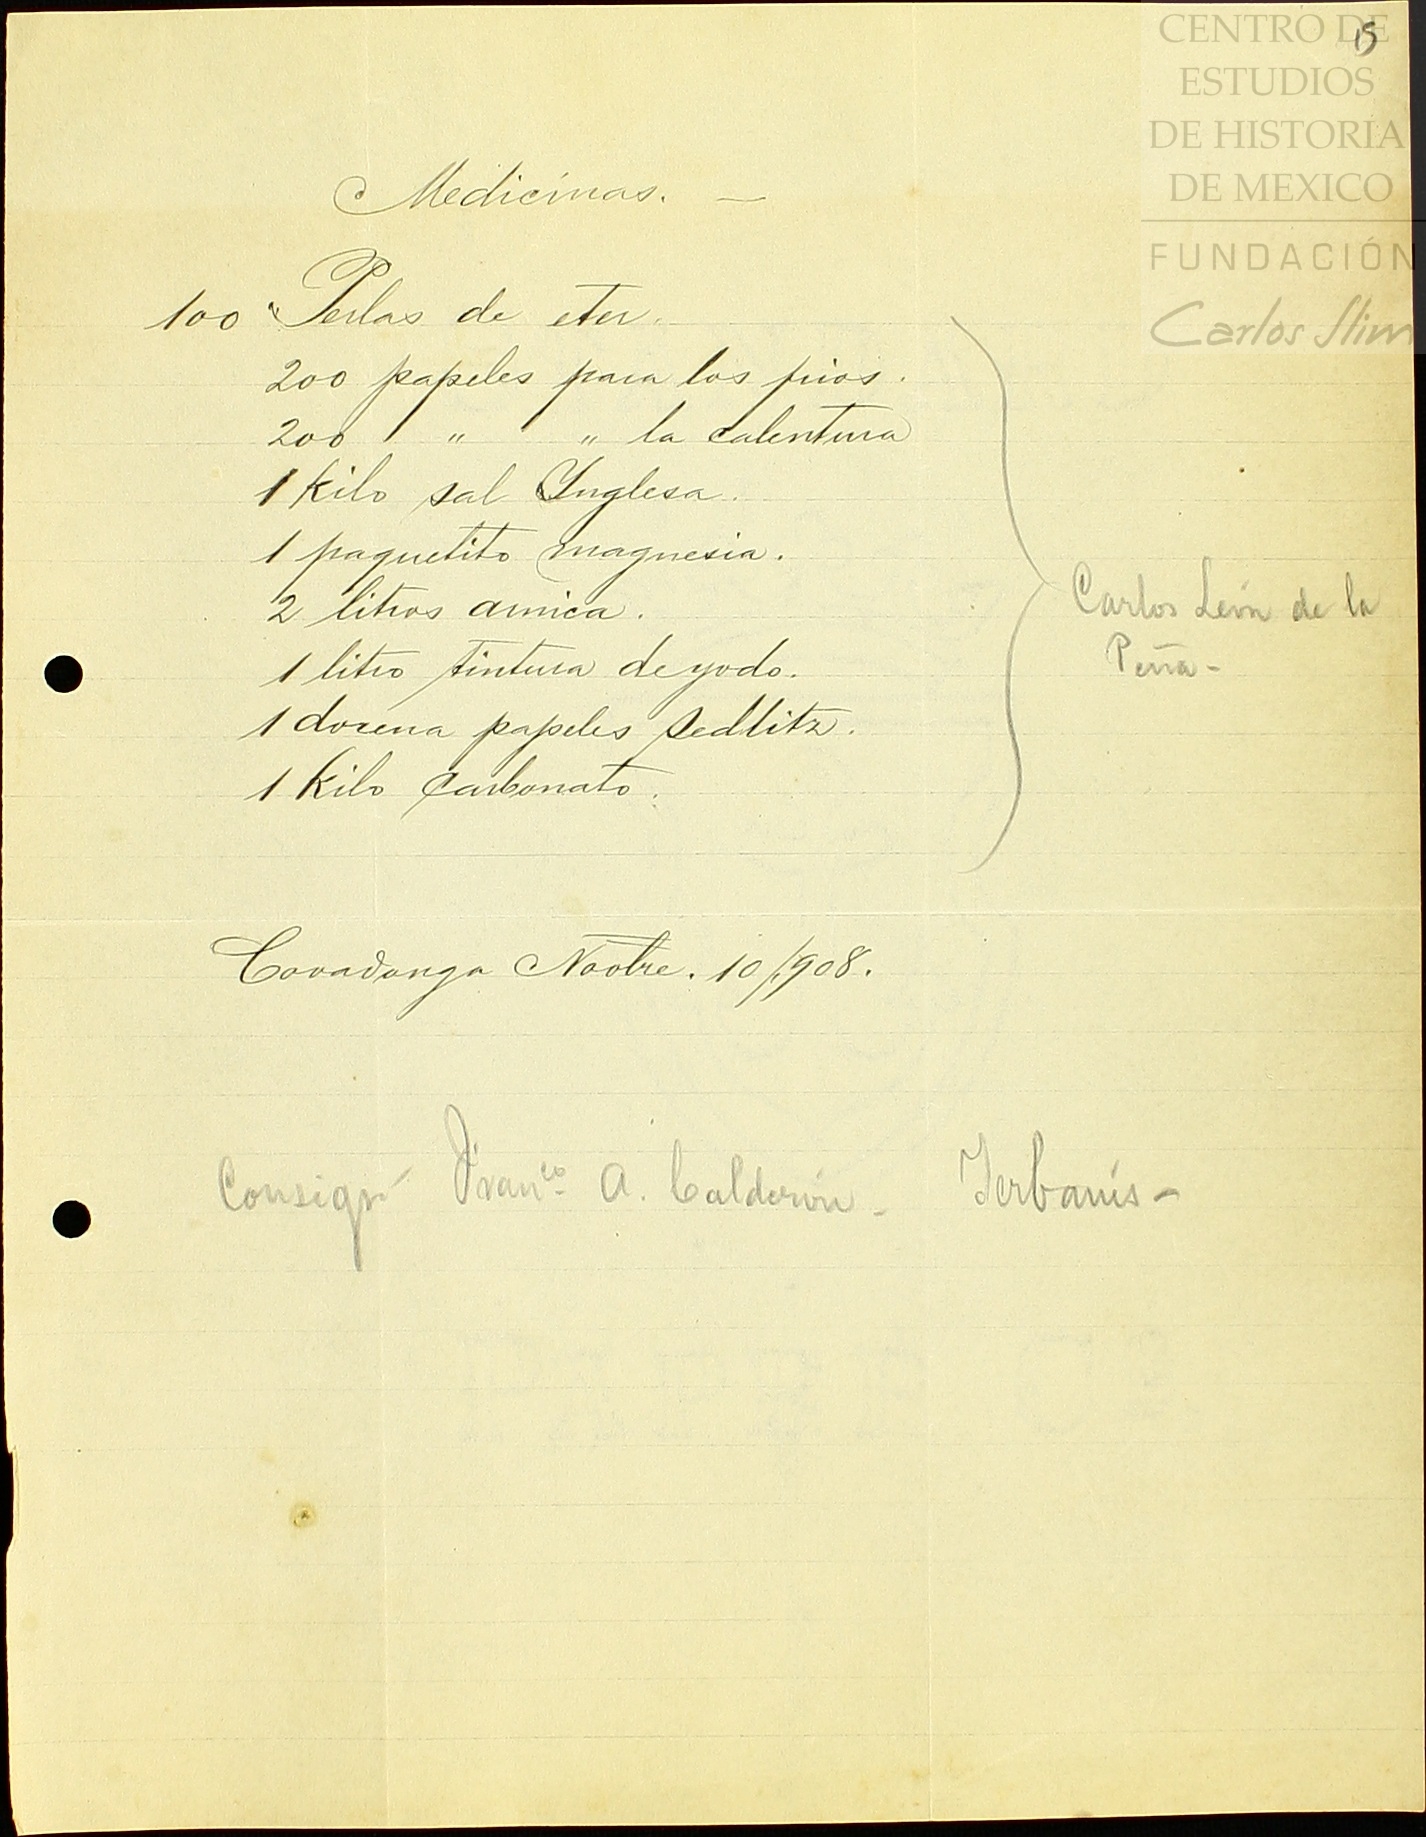 15
CENTRO DE
ESTUDIOS
DE HISTORIA
DE MEXICO
FUNDACIÓN
Carlos Slim
Medicinas. —
100 Perlas de eter.
200 papeles para los frios.
200 " " la calentura
1 Kilo sal Ynglesa.
1 paquetito magnesia.
2 litros arnica.
1 litro tintura de yodo.
1 docena papeles sedlitz.
1 Kilo carbonato.
Carlos León de la
Peña -
Covadonga Novbre. 10/1908.
Consigné Franco. A. Calderón - Yerbanís -